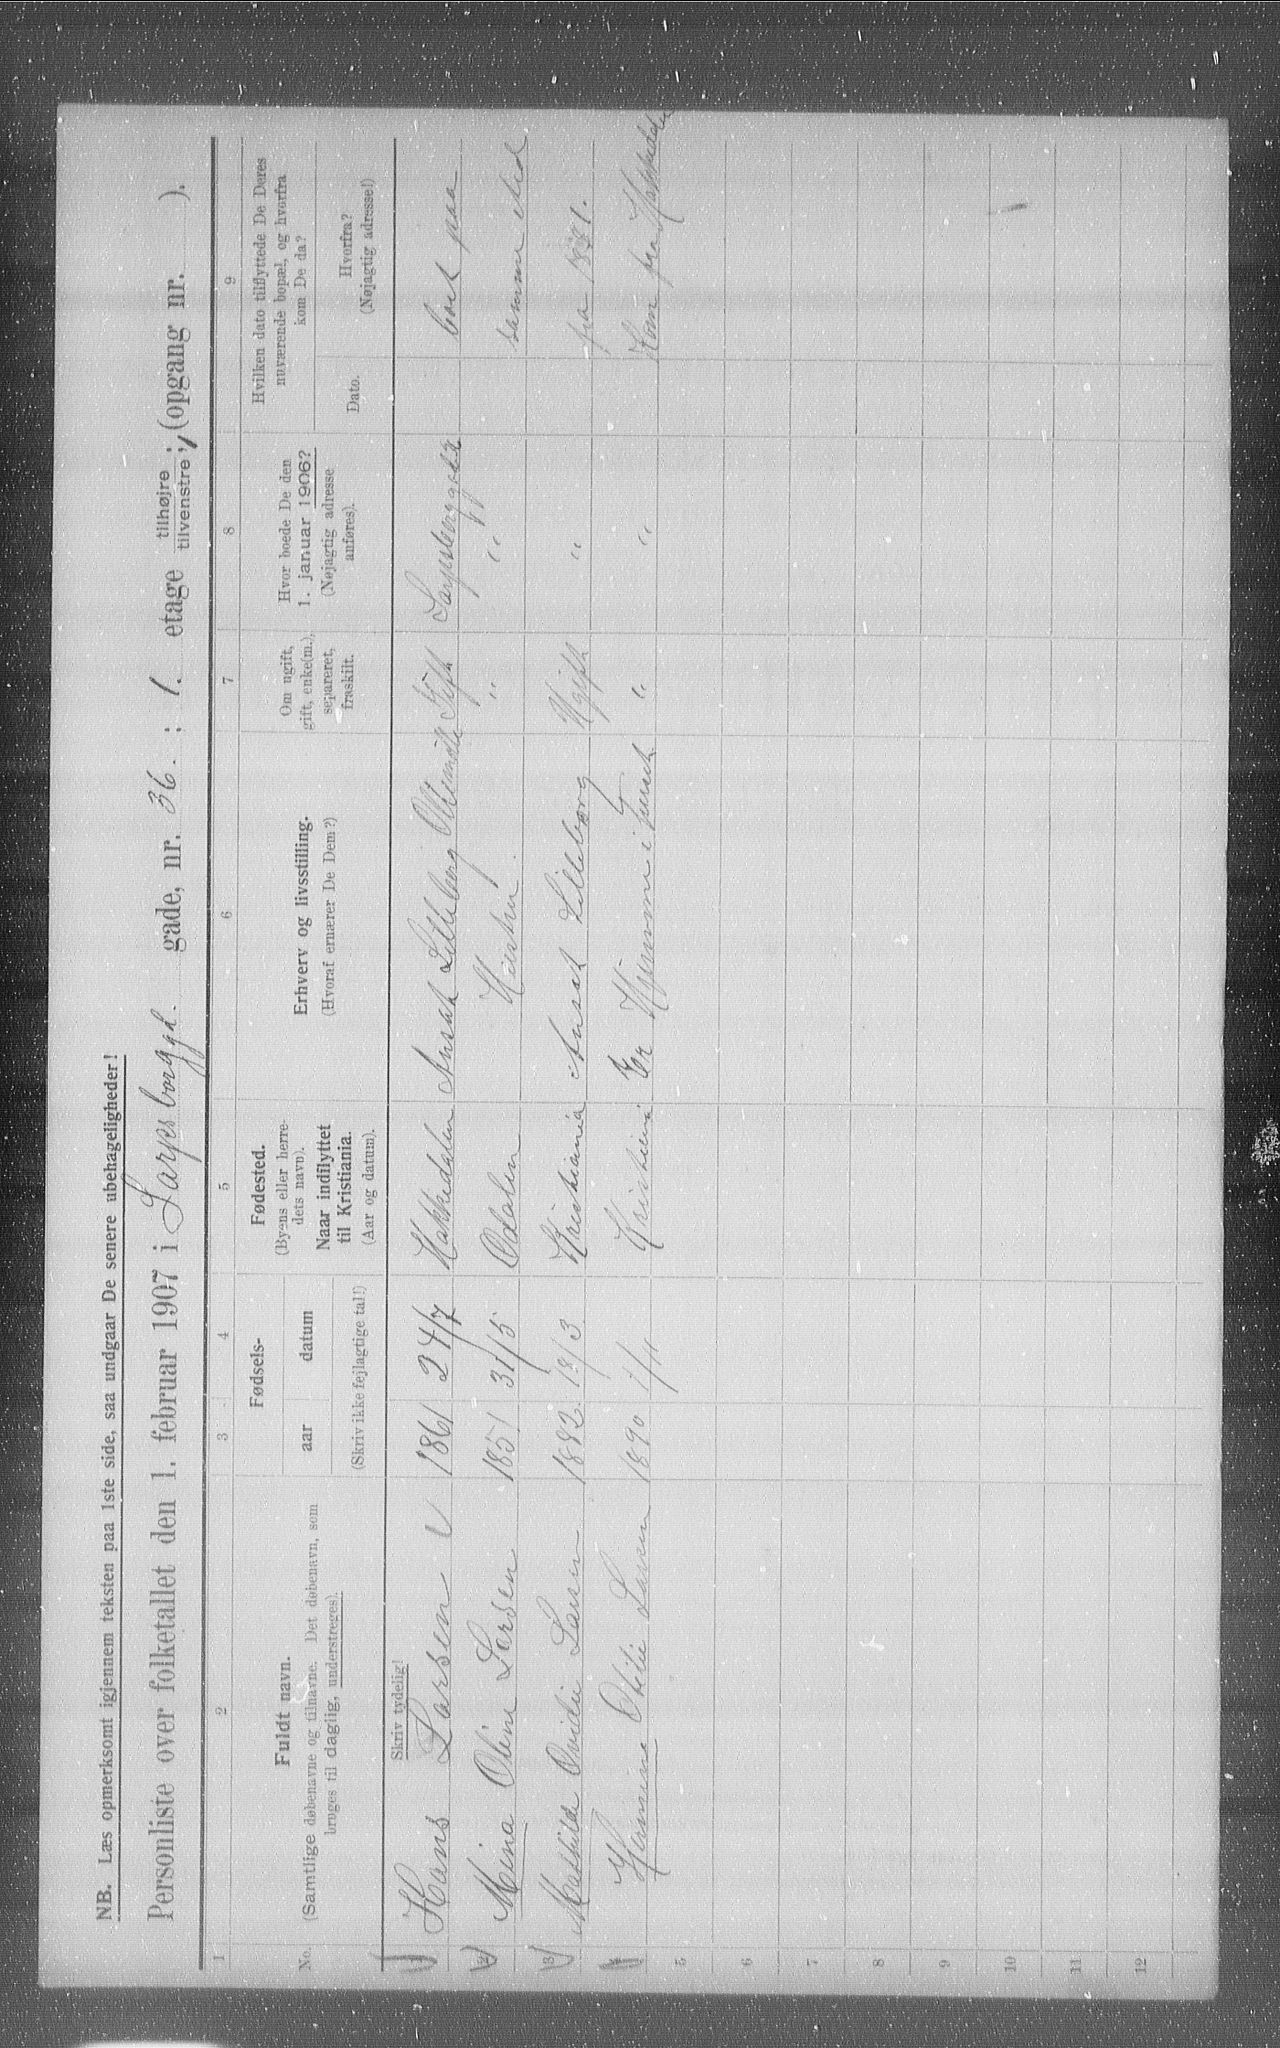 NB. Læs opmerksomt igjennem teksten paa 1ste side, saa undgaar De senere ubehageligheder!
Personliste over folketallet den 1. februar 1907 i Sarpsborggd. gade, nr. 36. ; 1. etage tilhøjre ; tilvenstre ; (opgang nr. ).
1 2 3 4 5 6 7 8 9
No.
Fuldt navn.
(Samtlige døbenavne og tilnavne. Det døbenavn, som
bruges til daglig, understreges).
Fødsels-
aar datum
(Skriv ikke fejlagtige tal!)
Fødested.
(Byens eller herre-
dets navn).
Naar indflyttet
til Kristiania.
(Aar og datum).
Erhverv og livsstilling.
(Hvoraf ernærer De Dem?)
Om ugift,
gift, enke(m.),
separeret,
fraskilt.
Hvor boede De den
1. januar 1906?
(Nøjagtig adresse
anføres).
Hvilken dato tilflyttede De Deres
nuværende bopæl, og hvorfra
kom De da?
Dato.
Hvorfra?
(Nøjagtig adresse!)
Skriv tydelig!
1 Hans Larsen 1861 24/7 Hakkedalen Ansat Lilleborg Oliemølle Gift Sarpsborggata boet paa
2 Mina Oline Larsen 1851 31/5 Odalen Hustru " " samme sted
3 Mathilde Ovidie Larsen 1882 18/3 Kristiania Ansat Lilleborg Ugift " fra 1881.
4 Hermine Otelie Larsen 1890 1/11 Kristiania Er Hjemme i huset " " Kom fra Hakkedalen
5
6
7
8
9
10
11
12